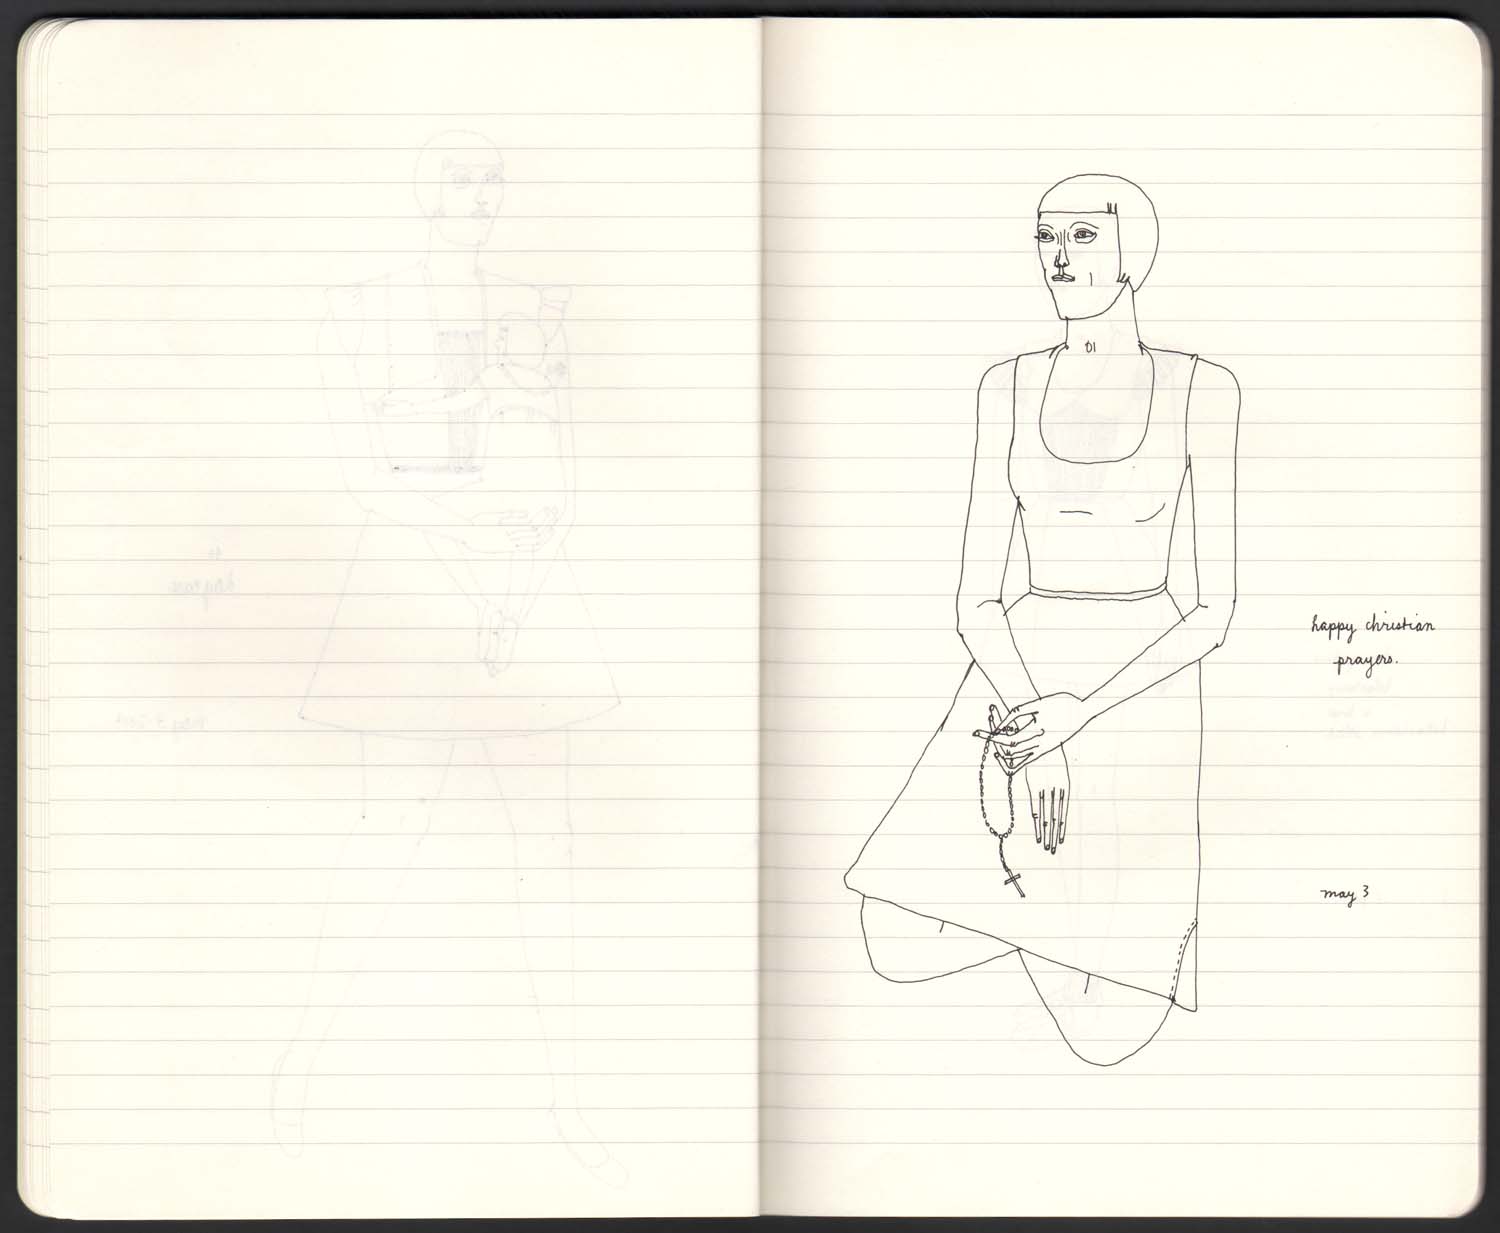 happy christian
prayers.
may 3